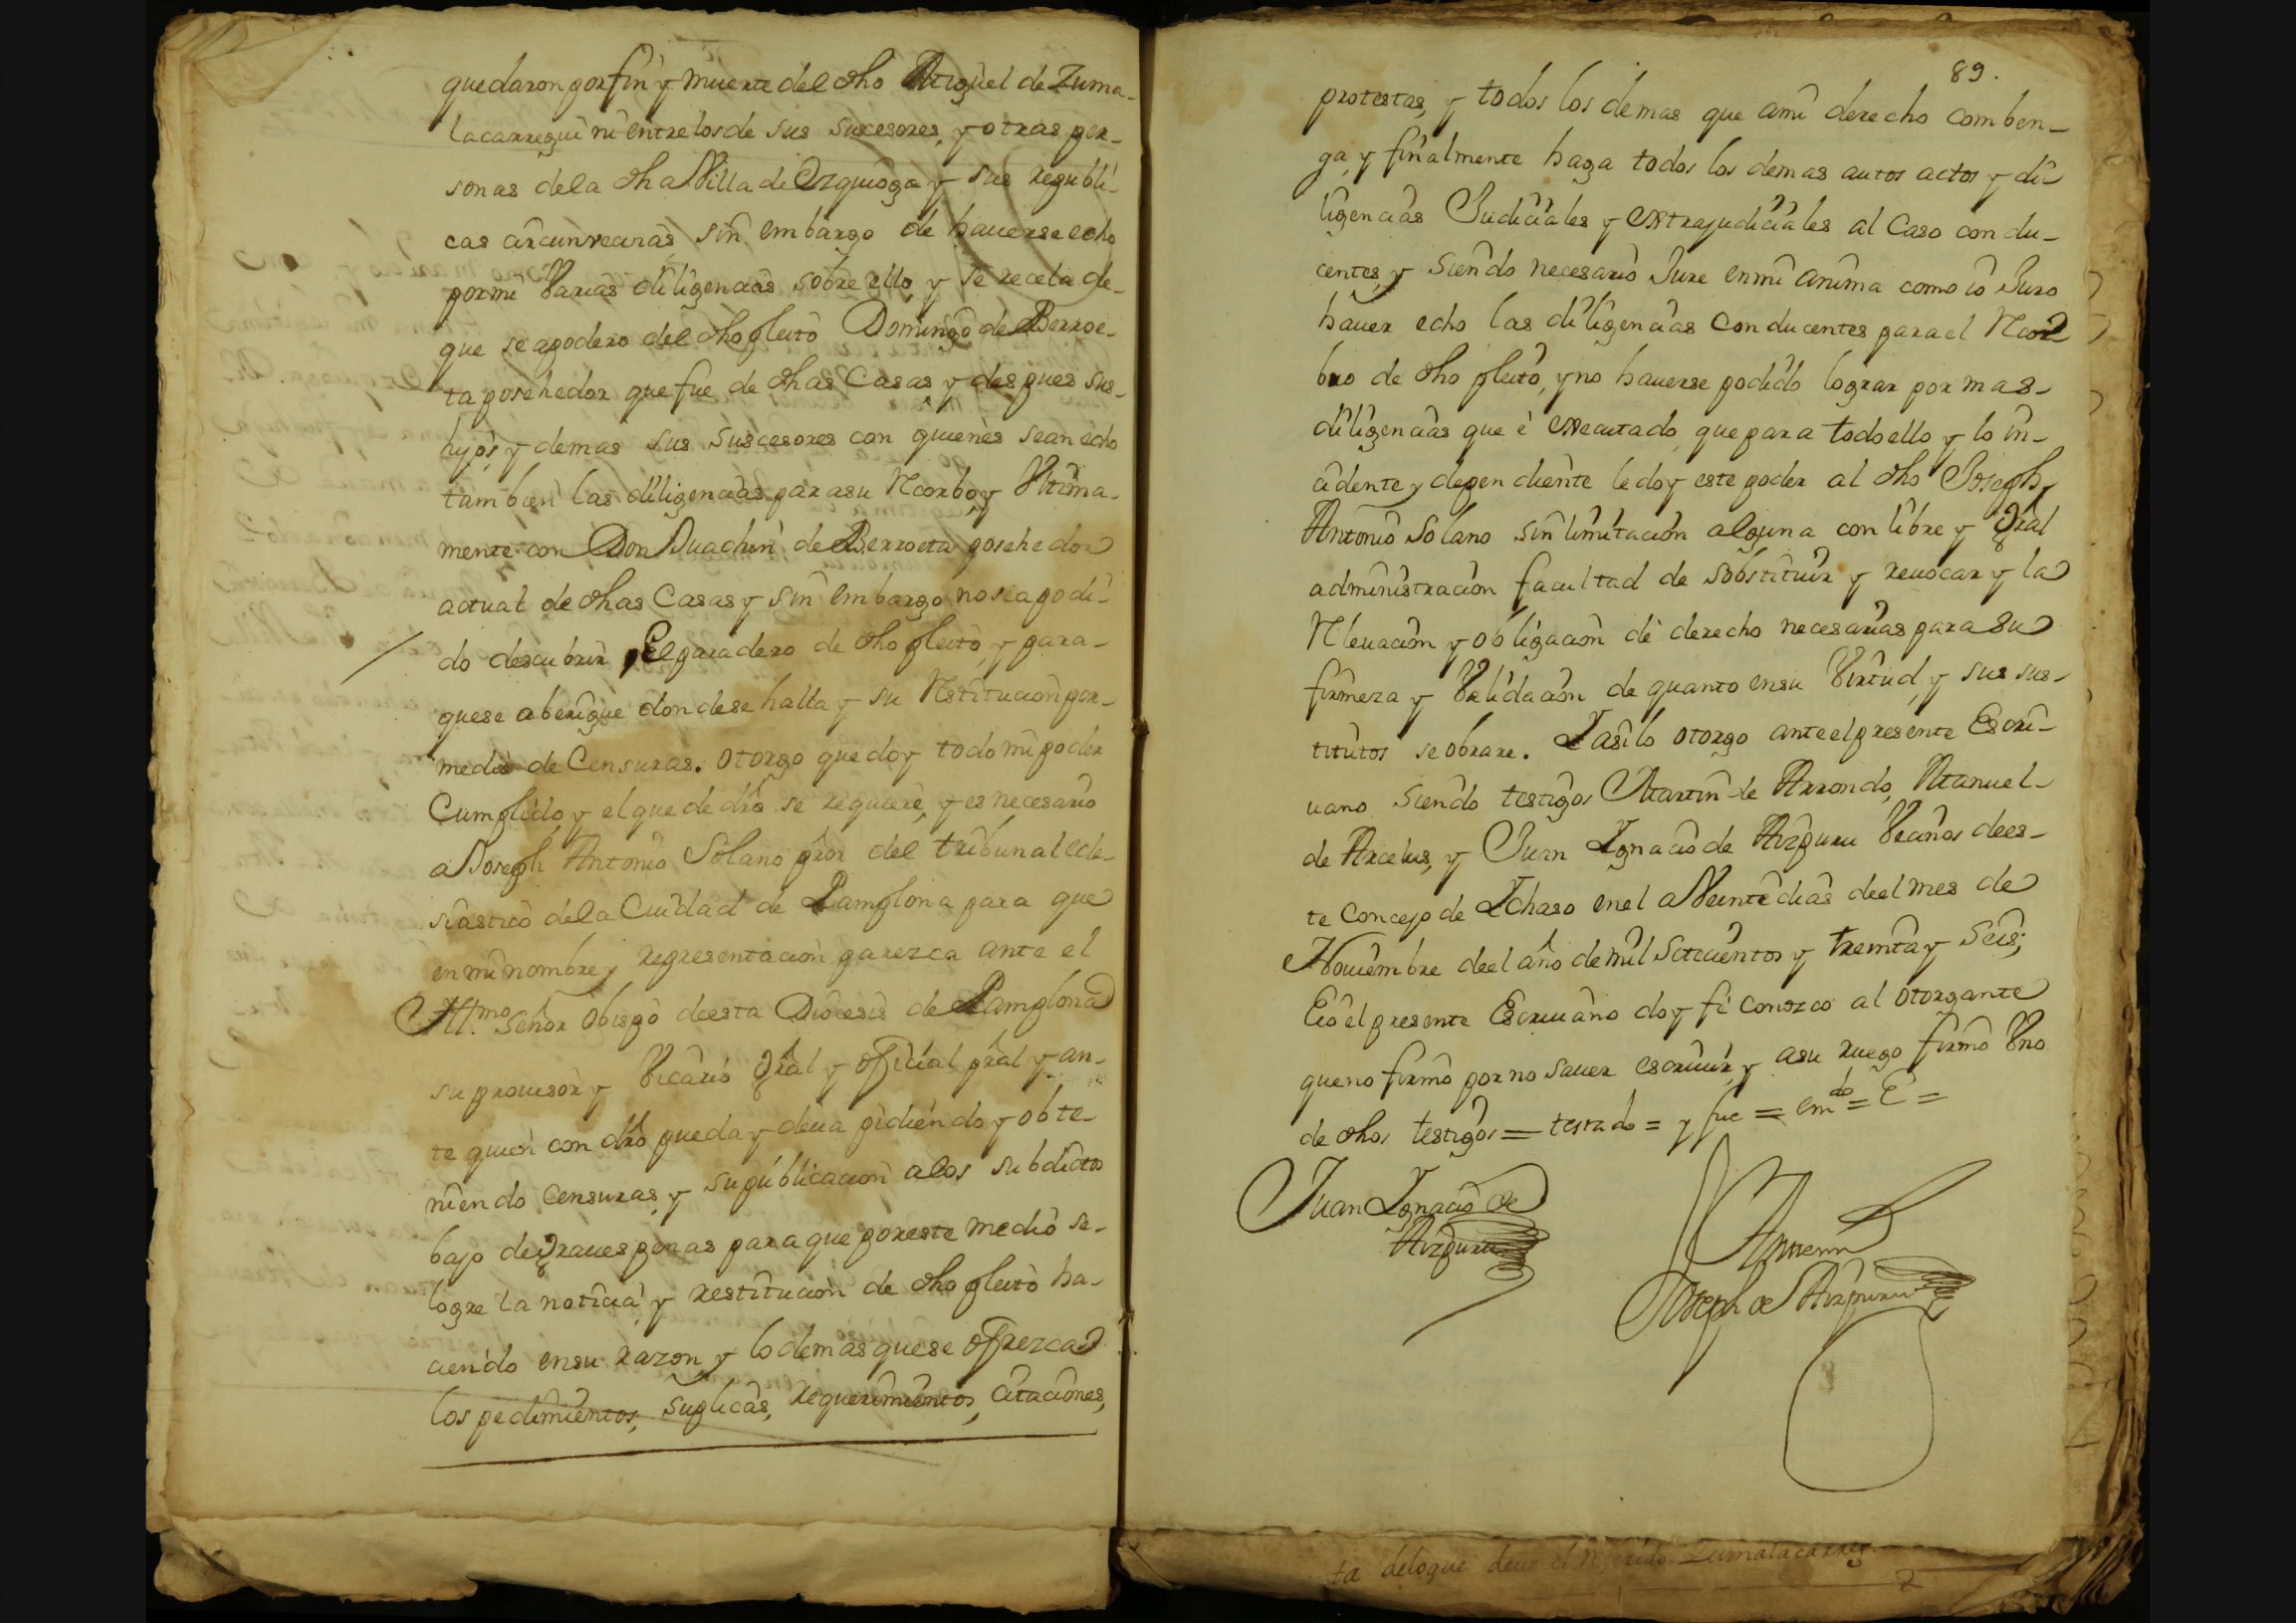 quedaron por fin y muerte del dho Miguel de Zuma-
lacarregui ni entre los de sus sucesores, y otras per-
sonas de la dha Villa de Ezquioga y sus republi-
cas circunvecinas sin embargo de hauerse echo
por mi Varias diligencias sobre ello, y se recela de-
que se apodero del dho pleito Domingo de Berroe-
ta posehedor que fue de dhas Casas y despues sus-
hijos y demas sus suscesores con quienes sean echo
tambien las diligencias para su Recorbo, y Vltima-
mente con Don Juachin de Berroeta posehedor
actual de dhas Casas y sin embargo no sea podi-
do descubrir El paradero de dho pleito, y para-
que se aberigue donde se halla y su Restitucion por-
medio de Censuras. otorgo que doy todo mi poder
Cumplido y el que de dro se requiere, y es necesario
a Joseph Antonio Solano pror del tribunal ecle-
siastico de la Ciudad de Pamplona para que
en mi nombre y representacion parezca ante el
Illmo. Señor obispo deesta Diocesis de Pamplona
su prouisor y Vicario Gral y official pral y an-
te quien con dro pueda y deua pidiendo y obte-
niendo Censuras, y su publicacion a los subditos
bajo de Graues penas para que por este medio se-
logre la noticia y restitucion de dho pleito ha-
ciendo en su razon y lo demas que se ofrezca
los pedimientos, suplicas, requerimientos, citaciones,
89.
protestas, y todos los demas que ami derecho comben-
ga, y finalmente haga todos los demas autos actos y di-
ligencias Judiciales y extrajudiciales al Caso condu-
centes, y siendo necesario Jure en mi anima como io Juro
hauer echo las diligencias Conducentes para el Recor
bro de dho pleito, y no hauerse podido lograr por mas-
diligencias que è executado, que para todo ello y lo in-
cidente y dependiente le doy este poder al dho Joseph
Antonio Solano sin limitacion alguna con libre y Gral
administracion facultad de sobstituir y reuocar y la
Releuacion y obligacion de derecho necesarias para su
firmeza y Validacion de quanto en su Virtud, y sus sus-
titutos se obrare. I asi lo otorgo ante el presente Escri-
uano siendo testigos Martin de Arrondo, Manuel-
de Arcelus, y Juan Ignacio de Aizpuru Vecinos de es-
te Concejo de Ichaso en el a Veinte dias de el mes de
Nouiembre de el año de mil Setecientos y treinta y seis;
E io el presente Escriuano doy fe conozco al otorgante
que no firmo por no sauer escriuir, y a su ruego firmo Vno
de dhos testigos = testado = y fue = emdo = E =
Juan Ignacio de
Aizpuru
Ante mi
Joseph de Aizpuru
ta delo que deue el referido Zumalacarreg